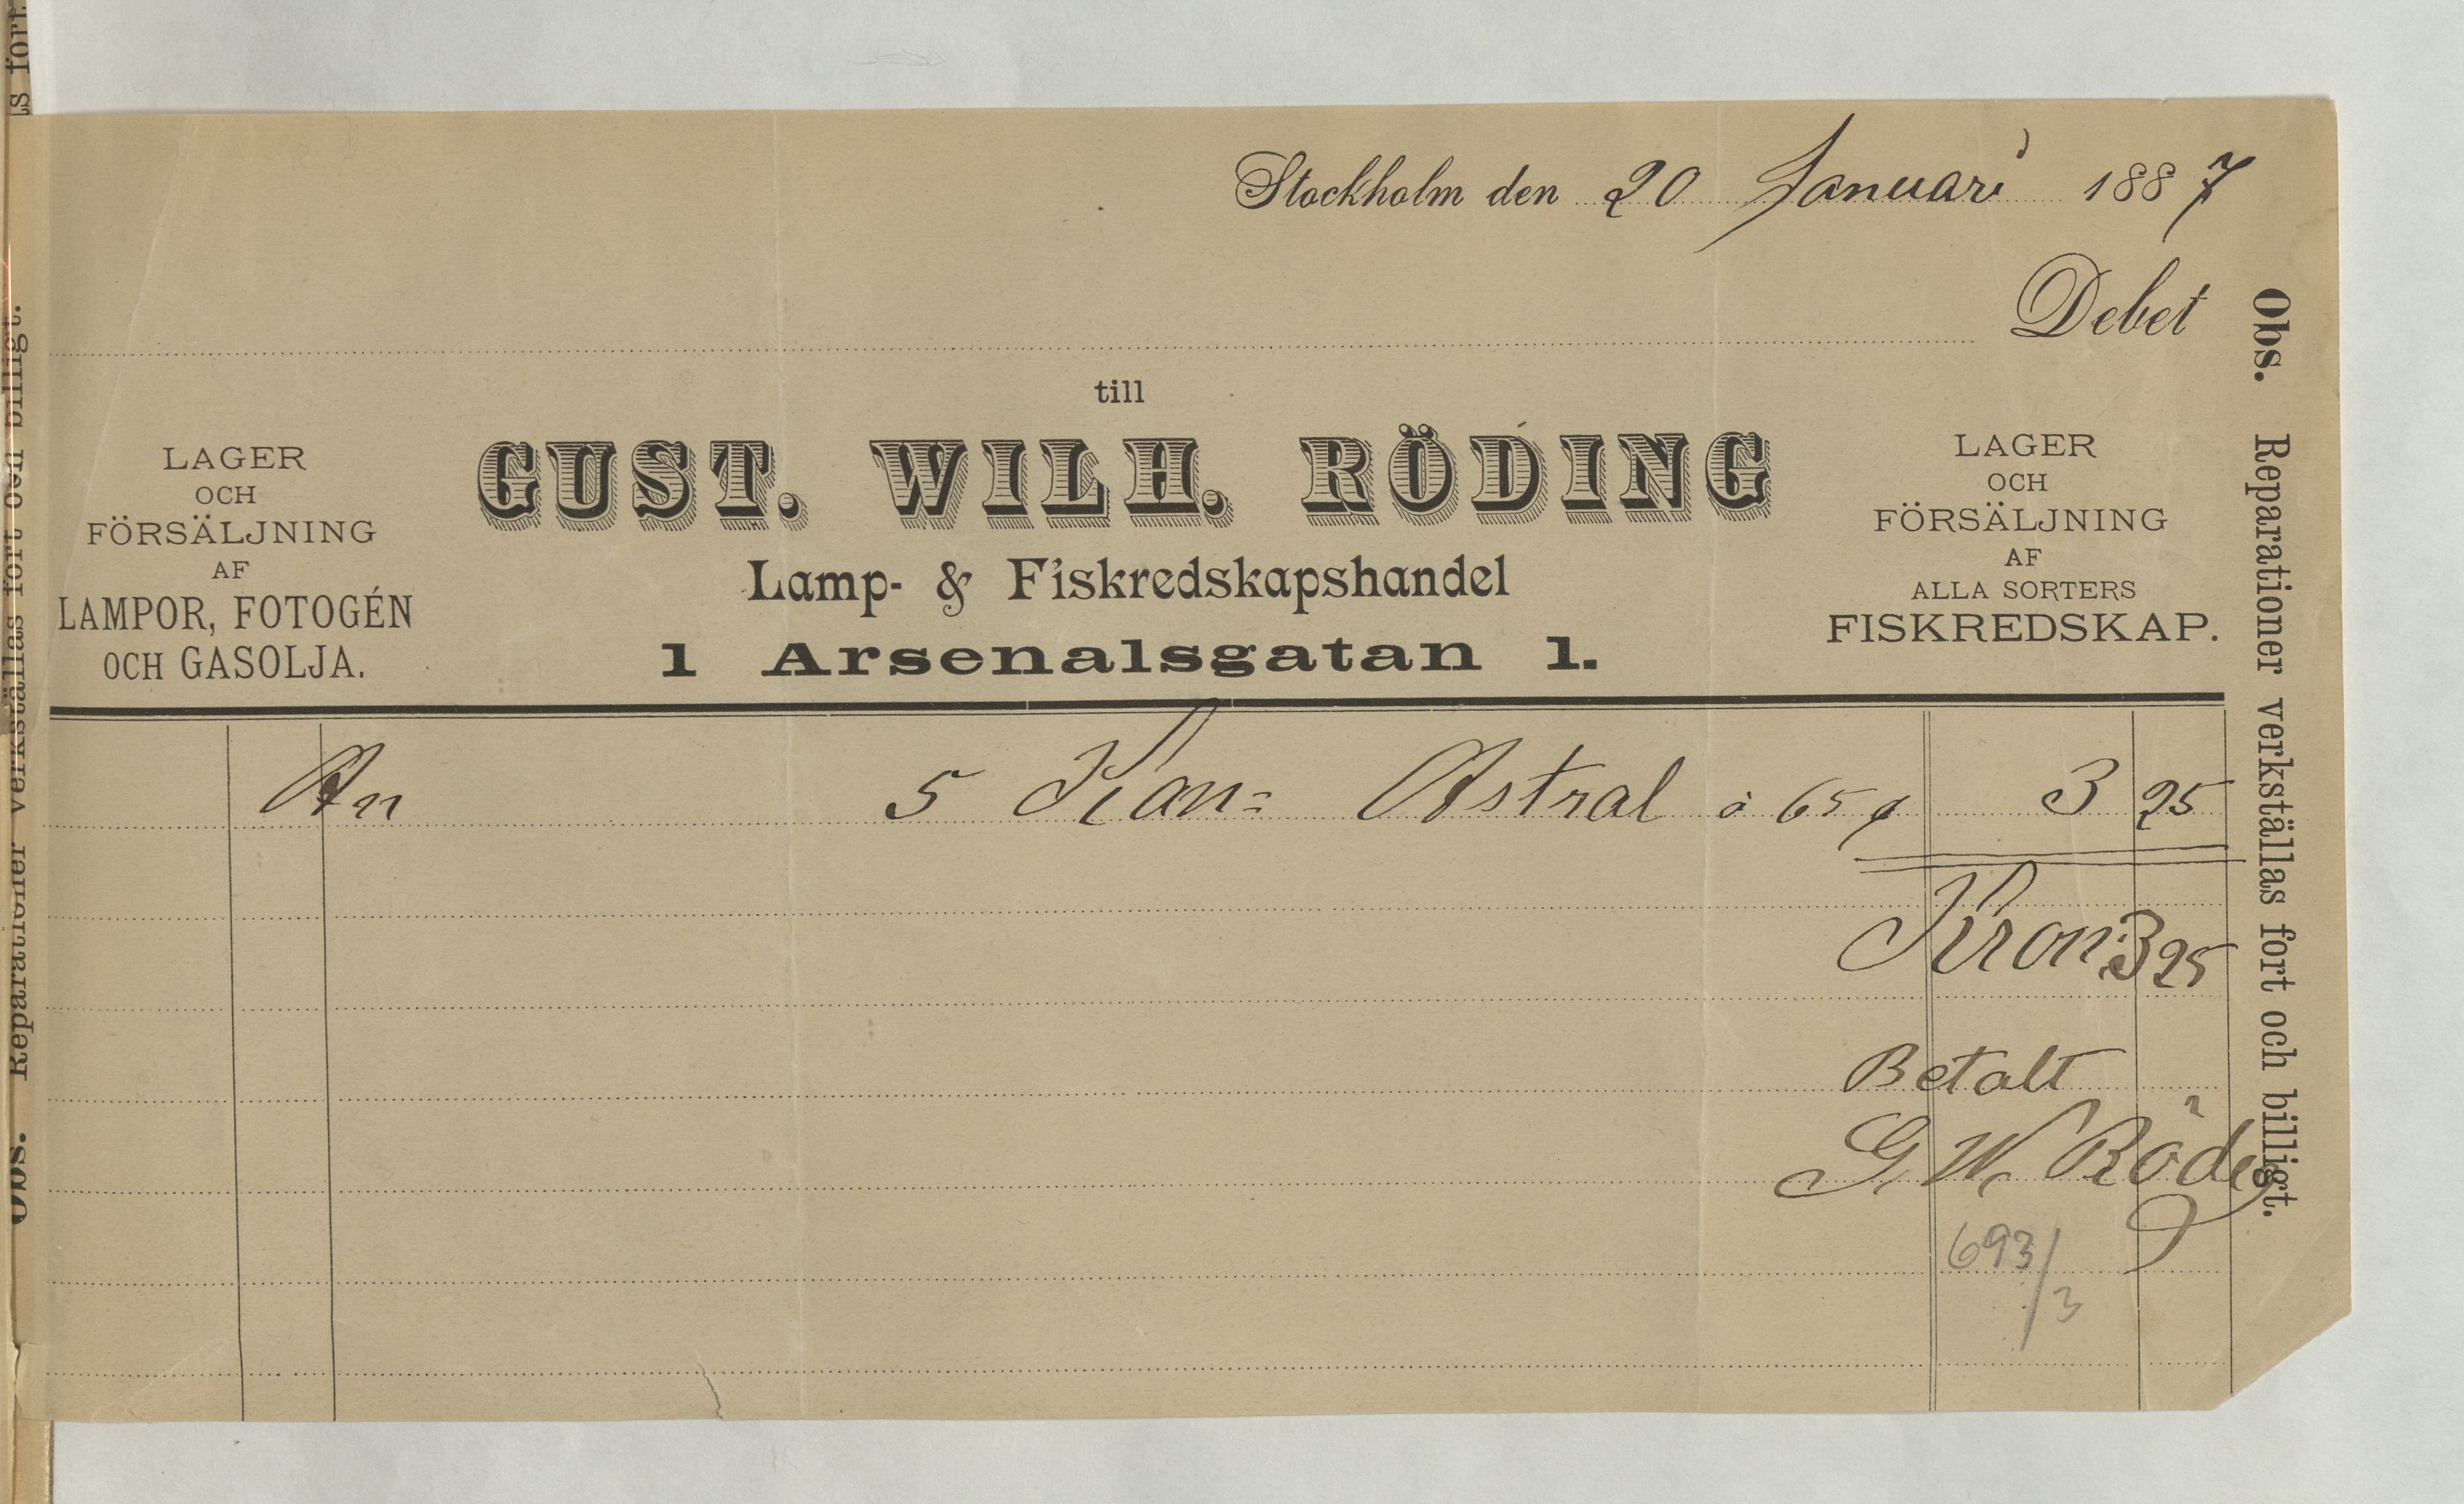 Stockholm den 20 Januari 1887
Debet
till
GUST. WILH. RÖDING
Lamp- & Fiskredskapshandel
1 Arsenalsgatan 1.
LAGER
OCH
FÖRSÄLJNING
AF
LAMPOR, FOTOGÉN
OCH GASOLJA.
LAGER
OCH
FÖRSÄLJNING
AF
ALLA SORTERS
FISKREDSKAP.
An 5 Kan= Astral à 65 3 25
Kron: 3 25
Betalt
G. W. Röding
693/3
Obs. Reparationer verkställas fort och billigt.
Obs. Reparationer verkställas fort och billigt.